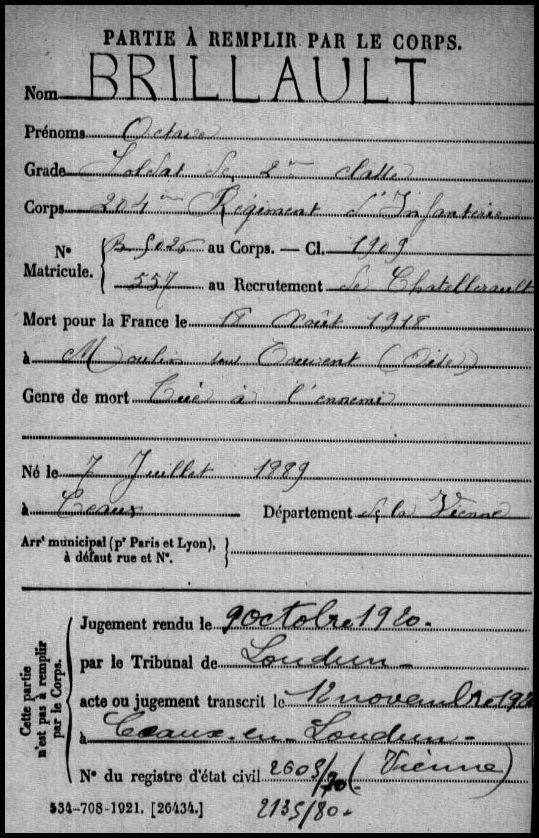 PARTIE À REMPLIR PAR LE CORPS.
Nom BRILLAULT
Prénoms Octave
Grade Soldat de 2me classe
Corps 204me Régiment d'Infanterie
N° Matricule. { B 5026 au Corps. — Cl. 1909
557 au Recrutement de Chatellerault
Mort pour la France le 18 Août 1918
à Moulin sous Touvent (Oise)
Genre de mort Tué à l'ennemi
Né le 7 Juillet 1889
à Ceaux Département de la Vienne
Arrt municipal (pr Paris et Lyon), }
à défaut rue et N°.
Cette partie n'est pas à remplir par le Corps.
Jugement rendu le 9 octobre 1920.
par le Tribunal de Loudun
acte ou jugement transcrit le 12 novembre 1920
à Ceaux-en-Loudun
N° du registre d'état civil 2603/70 (Vienne)
534-708-1921. [26434.] 2135/80